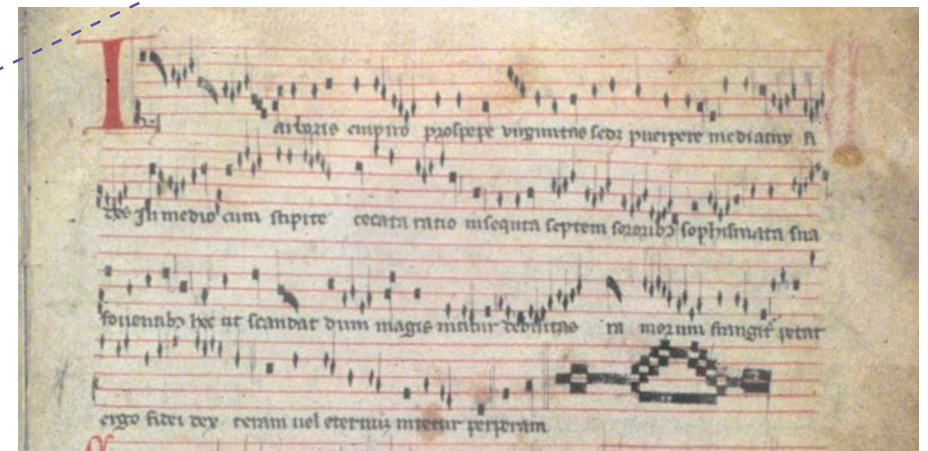 I artaris empiro prospere virginitas sedes puerpere mediamur fi
des In medio cum stipite cecata ratio insequita septem sororibus sophismata sua
foventibus hec ut scandat dum magis nititur debilitas ra morum frangitur petat
ergo fidei dex teram vel eternum nitetur perperam